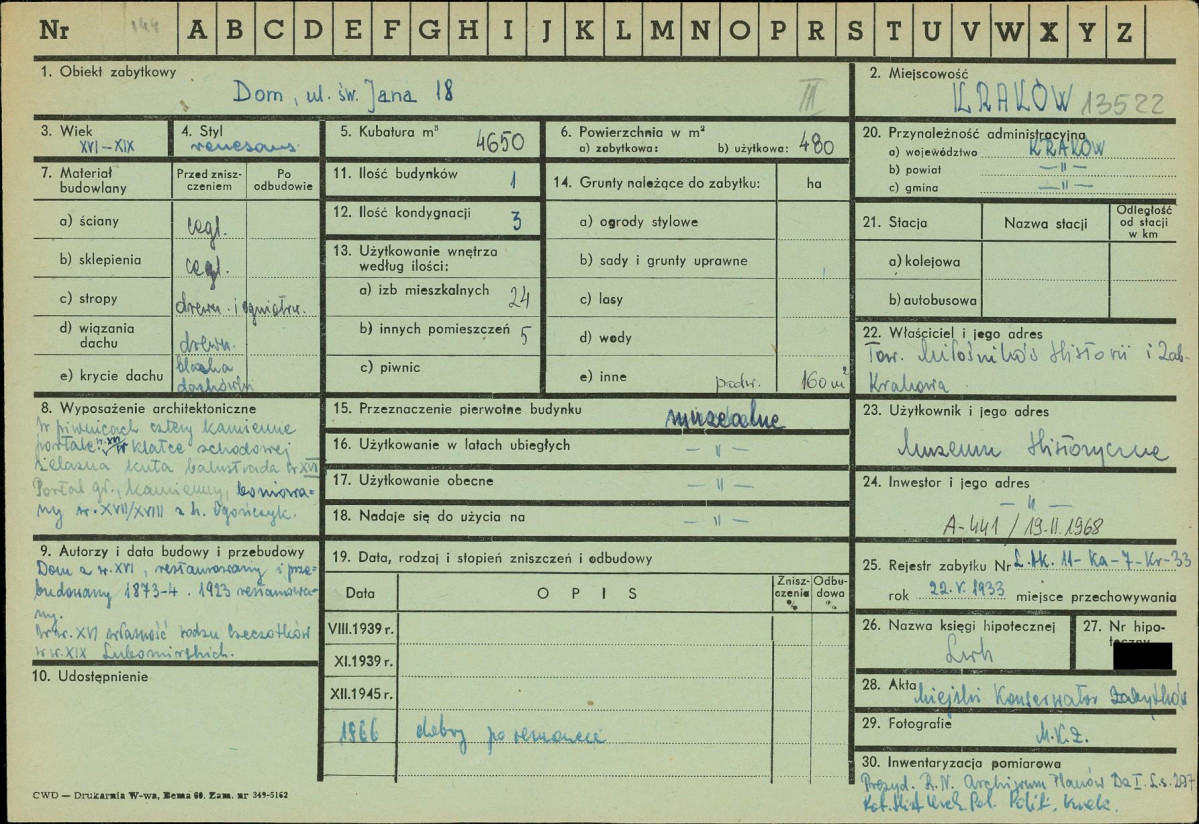 Nr 144 A B C D E F G H I J K L M N O P R S T U V W X Y Z
1. Obiekt zabytkowy
Dom, ul. św. Jana 18 III
2. Miejscowość
KRAKÓW 13522
3. Wiek
XVI–XIX
4. Styl
renesans
5. Kubatura m³ 4650
6. Powierzchnia w m²
a) zabytkowa: b) użytkowa: 480
20. Przynależność administracyjna
a) województwo KRAKÓW
b) powiat —"—
c) gmina —"—
7. Materiał budowlany
Przed zniszczeniem
Po odbudowie
a) ściany cegl.
b) sklepienia cegl.
c) stropy drewn. i ogniotrw.
d) wiązania dachu drewn.
e) krycie dachu blacha
dachówki
11. Ilość budynków 1
12. Ilość kondygnacji 3
13. Użytkowanie wnętrza
według ilości:
a) izb mieszkalnych 24
b) innych pomieszczeń 5
c) piwnic
14. Grunty należące do zabytku: ha
a) ogrody stylowe
b) sady i grunty uprawne
c) lasy
d) wody
e) inne podw. 160 m²
21. Stacja Nazwa stacji Odległość od stacji w km
a) kolejowa
b) autobusowa
22. Właściciel i jego adres
Tow. Miłośników Historii i Zab.
Krakowa
8. Wyposażenie architektoniczne
W piwnicach cztery kamienne
portale w. XVI, w klatce schodowej
żelazna kuta balustrada w. XVI
Portal gł., kamienny, boniowa-
ny w. XVII/XVIII z h. Ogończyk.
15. Przeznaczenie pierwotne budynku
16. Użytkowanie w latach ubiegłych —"—
17. Użytkowanie obecne —"—
18. Nadaje się do użycia na —"—
23. Użytkownik i jego adres
Muzeum Historyczne
24. Inwestor i jego adres
—"—
A-441 / 19.II.1968
9. Autorzy i data budowy i przebudowy
Dom z w. XVI, restaurowany i prze-
budowany 1873-4. 1923 restaurowa-
ny.
W w. XVI własność rodzu Czeczotków
w w. XIX Lubomirskich.
10. Udostępnienie
19. Data, rodzaj i stopień zniszczeń i odbudowy
Data OPIS Zniszczenia % Odbudowa %
VIII.1939 r.
XI.1939 r.
XII.1945 r.
1966 dobry po remoncie
25. Rejestr zabytku Nr L.AK. 11-Ka-7-Kr-33
rok 22.V.1933 miejsce przechowywania
26. Nazwa księgi hipotecznej
Lwh
27. Nr hipoteczny
28. Akta Miejski Konserwator Zabytków
29. Fotografie M.K.Z.
30. Inwentaryzacja pomiarowa
Prezyd. R.N. Archiwum Planów Dz I. L.s. 297
Kat. Hist. Arch. Pol. Polit. Krak.
CWD — Drukarnia W-wa, Bema 60. Zam. nr 349-5162